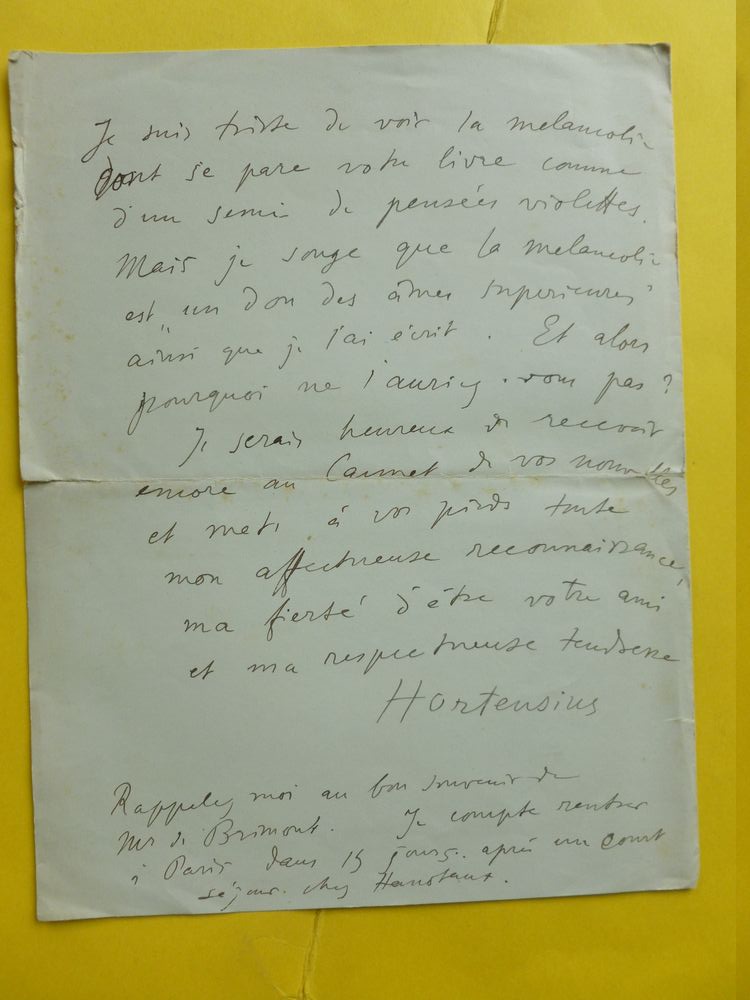 Je suis triste de voir la melancolie
dont se pare votre livre comme
d'un semis de pensées violettes.
Mais je songe que la melancolie
est "un don des âmes superieures"
ainsi que je l'ai écrit. Et alors
pourquoi ne l'auriez-vous pas ?
Je serais heureux de recevoir
encore au Cannet de vos nouvelles
et mets à vos pieds toute
mon affectueuse reconnaissance,
ma fierté d'être votre ami
et ma respectueuse tendresse
Hortensius
Rappelez moi au bon souvenir de
Mr de Brimont. Je compte rentrer
à Paris dans 15 jours. après un court
séjour. chez Hanotaux.